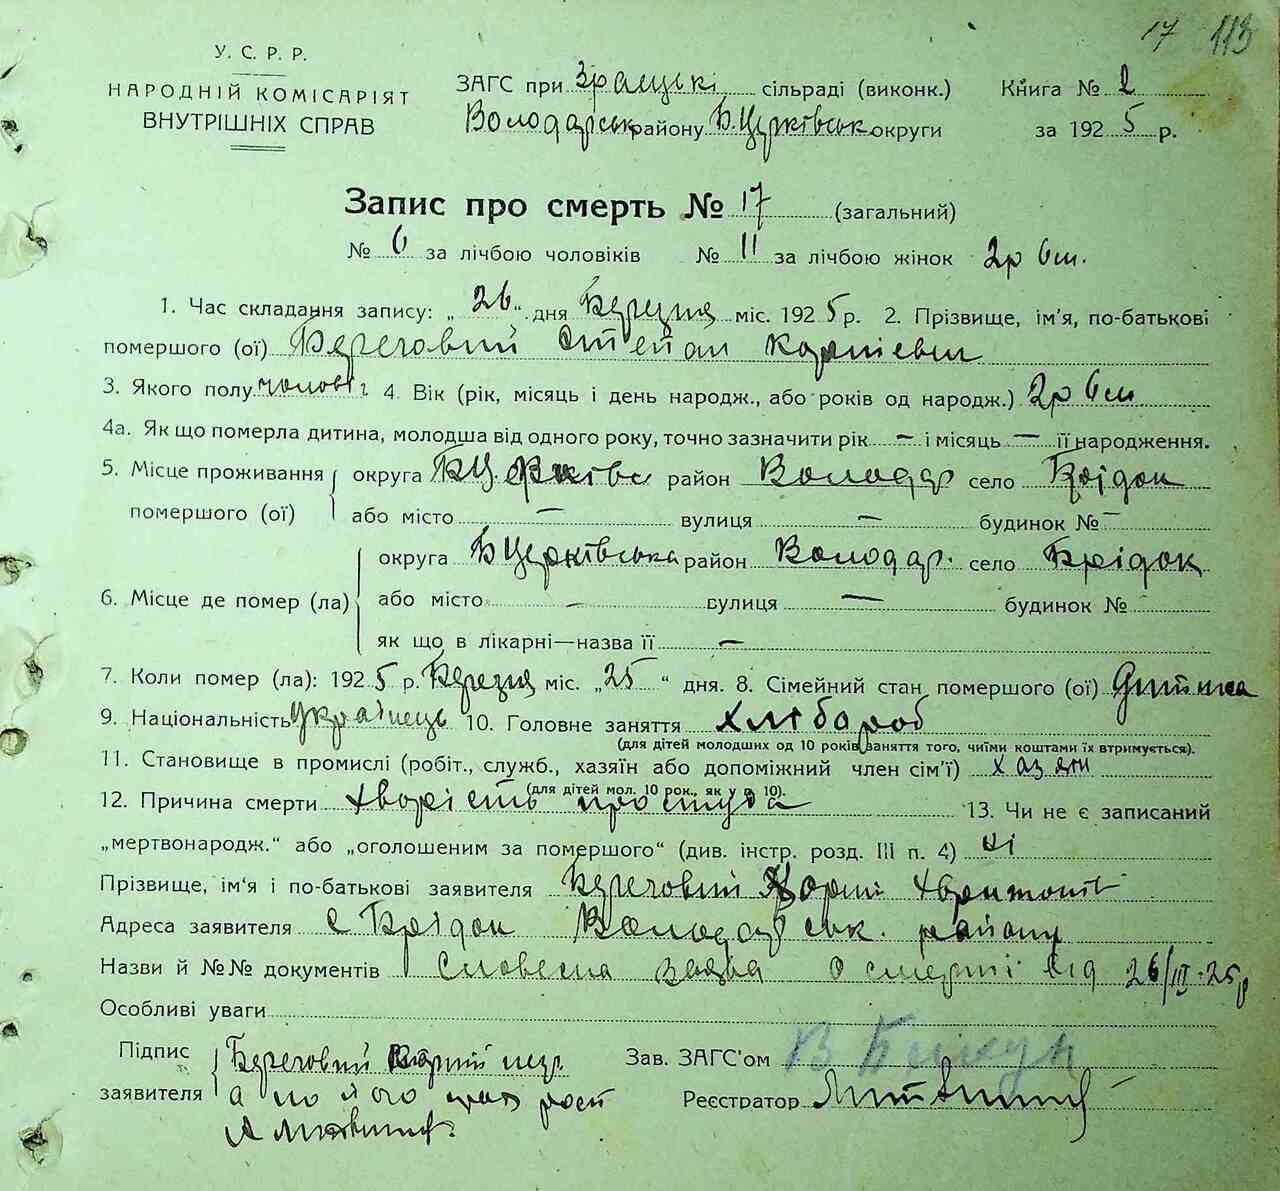 17 113
У. С. Р. Р.
НАРОДНІЙ КОМІСАРІЯТ
ВНУТРІШНІХ СПРАВ
ЗАГС при сільраді (виконк.) Книга № 2
Володарськ району Б.Церківськ округи за 1925 р.
Запис про смерть № 17 (загальний)
№ 6 за лічбою чоловіків № 11 за лічбою жінок 2р 6м.
1. Час складання запису: „26“ дня Березня міс. 1925 р. 2. Прізвище, ім'я, по-батькові
помершого (ої) Береговий Степан Карпієвич
3. Якого полу чолові 4. Вік (рік, місяць і день народж., або років од народж.) 2р 6м
4а. Як що померла дитина, молодша від одного року, точно зазначити рік — і місяць — її народження.
5. Місце проживання округа район Володар село Брідок
помершого (ої) або місто — вулиця — будинок № —
округа Б Церківська район Володар. село Брідок
6. Місце де помер (ла) або місто — вулиця — будинок №
як що в лікарні—назва її —
7. Коли помер (ла): 1925 р. Березня міс. „25“ дня. 8. Сімейний стан помершого (ої) Дитина
9. Національність Українець 10. Головне заняття хлібароб
(для дітей молодших од 10 років заняття того, чиїми коштами їх втримується).
11. Становище в промислі (робіт., служб., хазяїн або допоміжний член сім'ї) хазяїн
(для дітей мол. 10 рок., як у п. 10).
12. Причина смерти хворість простуда 13. Чи не є записаний
„мертвонародж.“ або „оголошеним за помершого“ (див. інстр. розд. III п. 4) ні
Прізвище, ім'я і по-батькові заявителя Береговий Карпій
Адреса заявителя с Брідок Володарськ. району
Назви й №№ документів Словесна заява о смерті від 26/III-25р
Особливі уваги
Підпис Береговий Карпій Зав. ЗАГС'ом
заявителя а по його Реєстратор